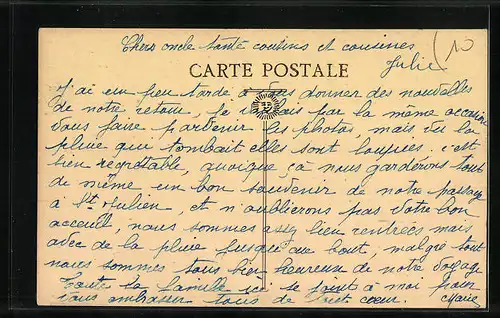 Chers oncle tante cousins et cousines
Julie
10
CARTE POSTALE
J'ai un peu tardé à vous donner des nouvelles
de notre retour, je voulais par la même occasion
vous faire parvenir les photos, mais vu la
pluie que tombait elles sont loupées. c'est
bien regrettable, quoique ça nous garderons tout
de même un bon souvenir de notre passage
à St Julien, et n'oublierons pas votre bon
acceuil, nous sommes assez bien rentrées mais
avec de la pluie jusque au bout, malgré tout
nous sommes tous bien heureux de notre voyage
Toute la famille ici se joint à moi pour
vous embrasser tous de tout cœur. Marie